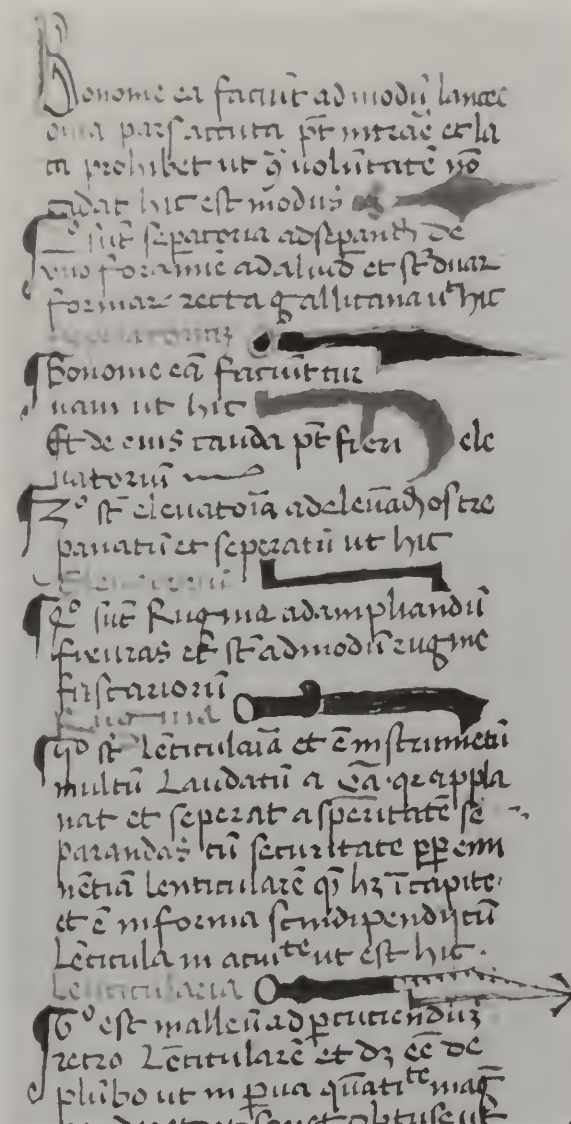 Bonome ea faciūt ad modū lancee
pars accuta pt̄ intrāe et la
ta prohibet ut q̄ uoluntatē nō
cadat hic est modus
2º sūt sepatoria ad sepand de
vno foramīe ad aliud et st̄ duar
formar recta gallitana ut hic
Bononie eā faciūt tur
nam ut hic
Et de eius cauda pt̄ fieri ele
uatoriū
3º st̄ eleuatoīa ad eleuād os tre
panatū et seperatū ut hic
Eleuatoriū
4º sūt Rugina ad ampliandū
fixuras et st̄ ad modū rugine
Rugina
st̄ lēticulaīa et ē instrumētū
multū Laudatū a Ga. qr appla
nat et seperat asperitatē se
parandas cū securitate ꝓp emi
nētiā lenticularē q̄ hz ī capite.
et ē in forma
Lēticula in acuitᵗᵉ ut est hic.
Lenticularia
6º est malleū ad ꝑcutiendū
retro Lēticularē et dz ēe de
plūbo ut in ꝑua q̄titaᵗᵉ mag